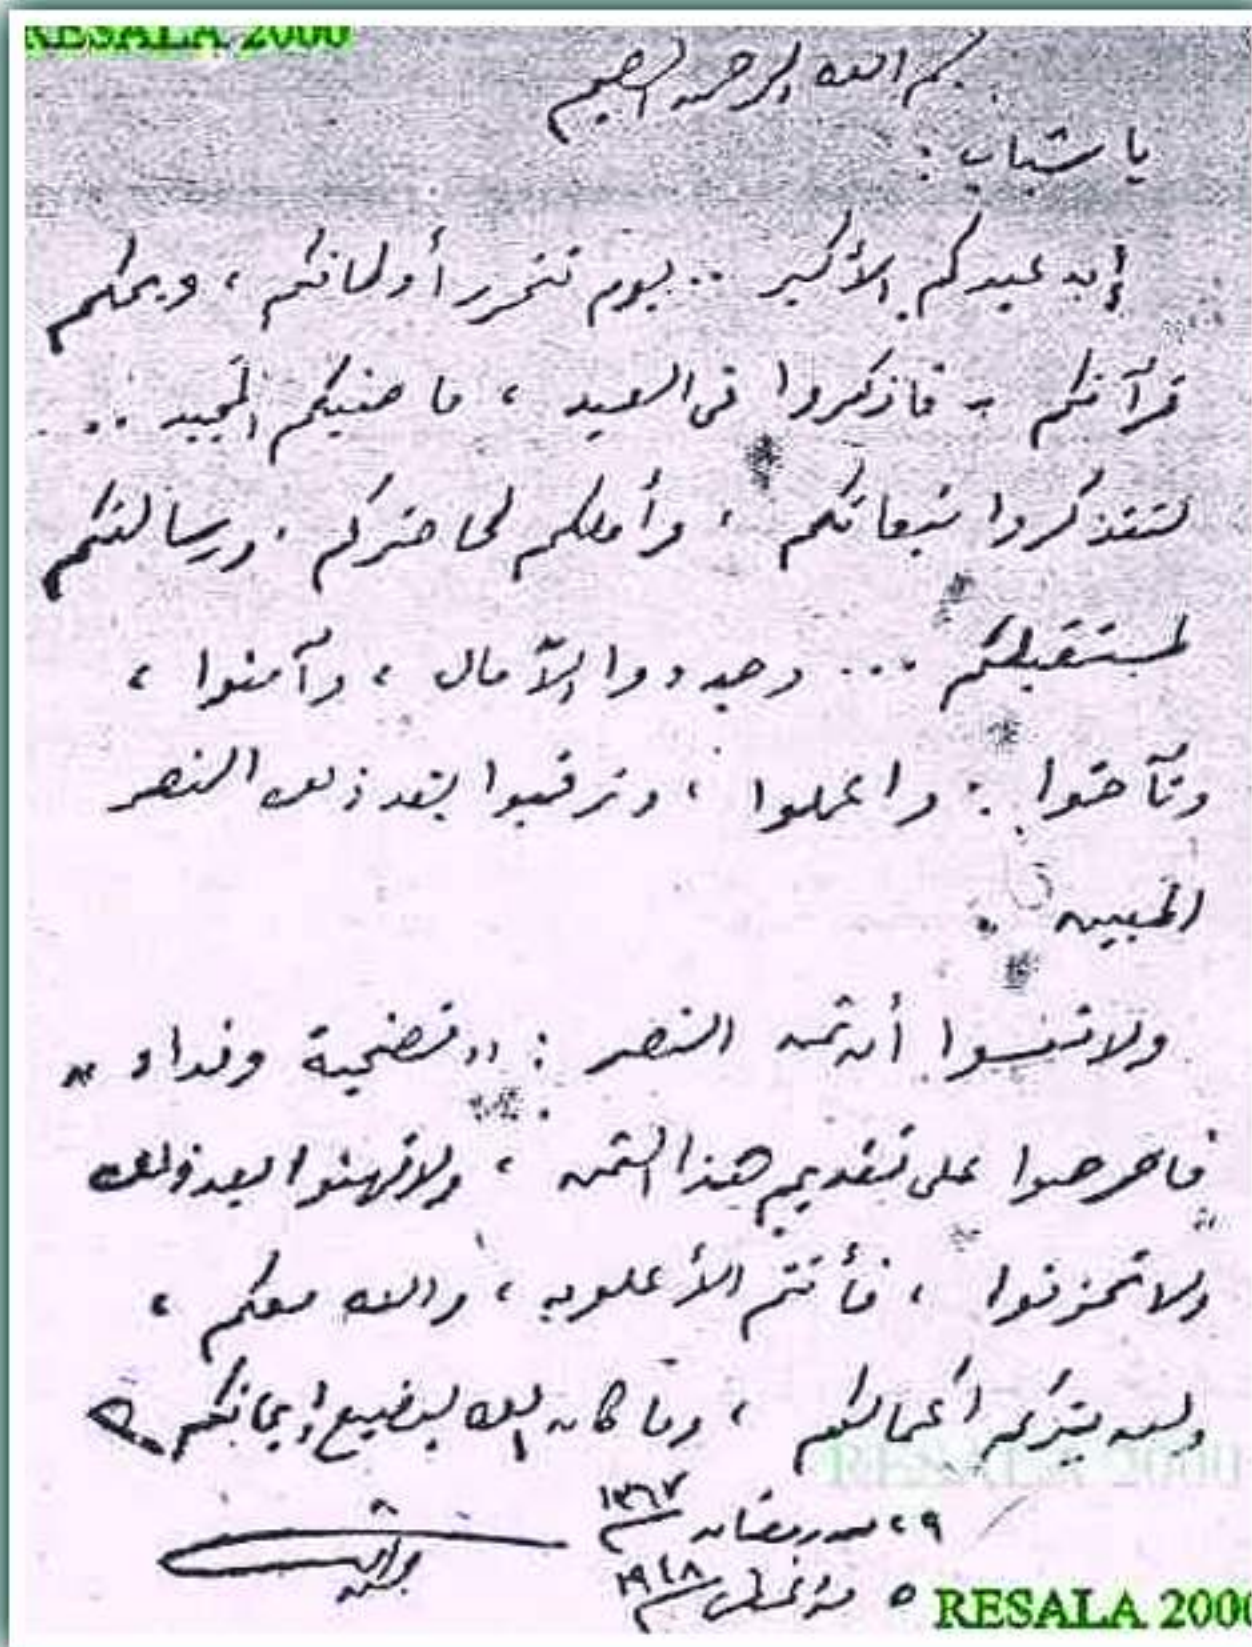 RESALA 2000
بسم الله الرحمن الرحيم
يا شباب :
إن عيدكم الأكبر .. يوم تتحرر أوطانكم ، ويحكم
قرآنكم - فاذكروا فى العيد ، ماضيكم المجيد ..
لتتذكروا تبعاتكم ، وأملكم لحاضركم ، ورسالتكم
لمستقبلكم ... وجددوا الآمال ، وآمنوا ،
وتآخوا : واعملوا ، وترقبوا بعد ذلك النصر
المبين ..
ولا تنسوا أن ثمن النصر : " تضحية وفداء "
فاحرصوا على تقديم هذا الثمن ، ولا تهنوا بعد ذلك
ولا تحزنوا ، فأنتم الأعلون ، والله معكم ،
ولن يتركم أعمالكم ، وما كان الله ليضيع إيمانكم
RESALA 2000
٢٩ من رمضان ١٣٦٧
٥ من أغسطس ١٩٤٨
RESALA 2000